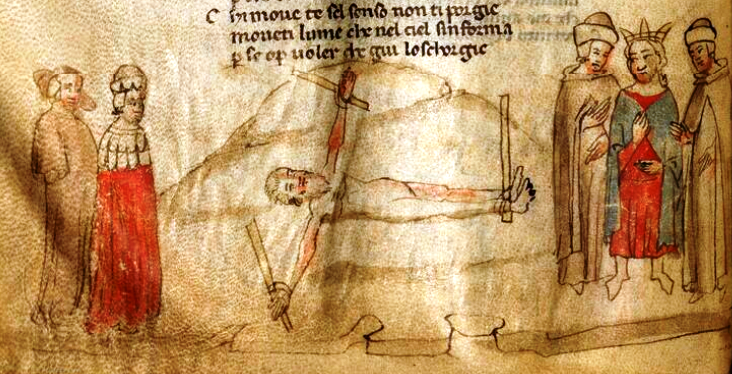 C hi moue te sel senso non ti porgie
moueti lume che nel ciel sinforma
p se op uoler che giu loschorgie